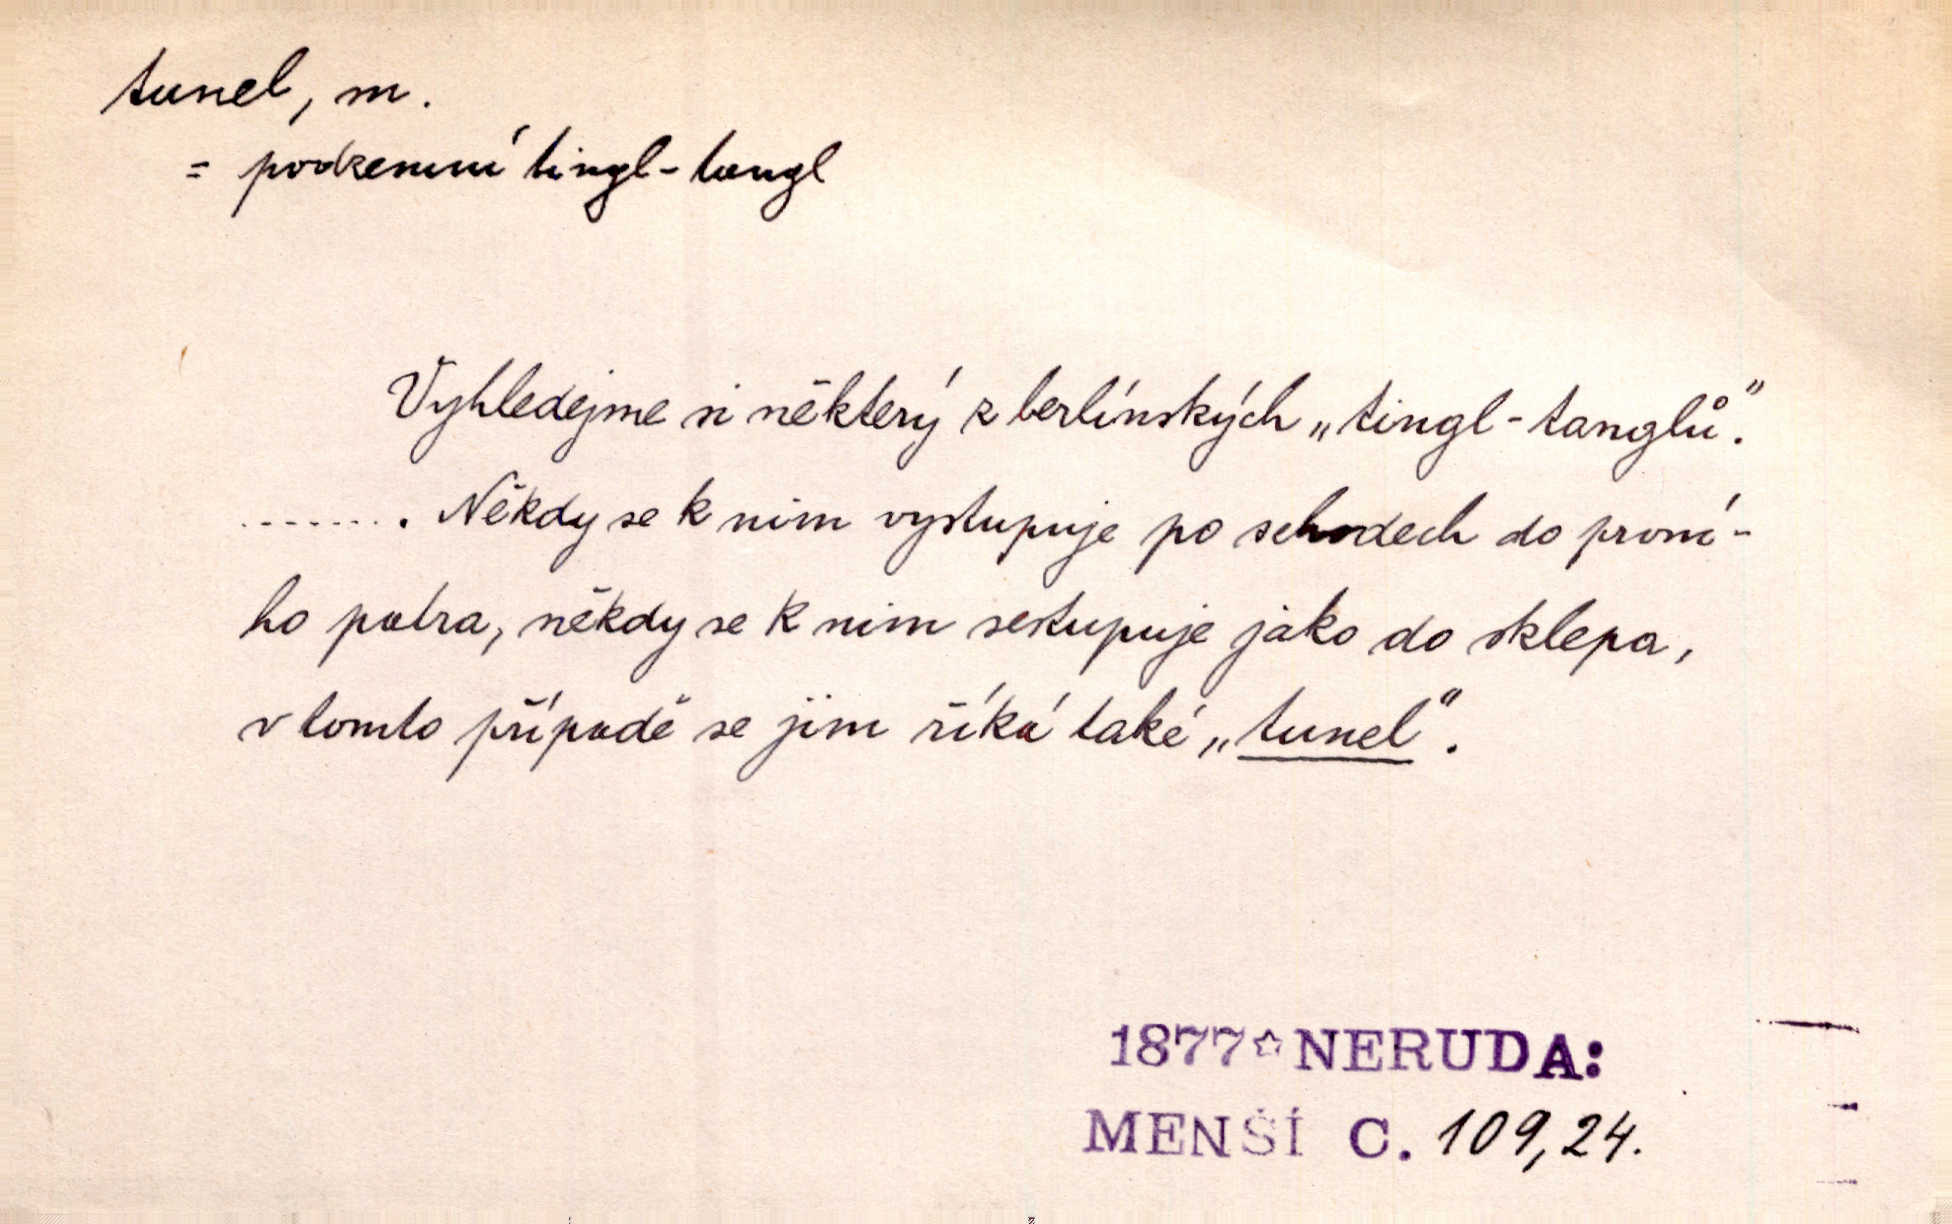 tunel, m.
= podzemní tingl-tangl
Vyhledejme si některý z berlínských „tingl-tanglů".
........ Někdy se k nim vystupuje po schodech do první-
ho patra, někdy se k nim sestupuje jako do sklepa,
v tomto případě se jim říká také „tunel".
1877☆NERUDA:
MENŠÍ C. 109,24.